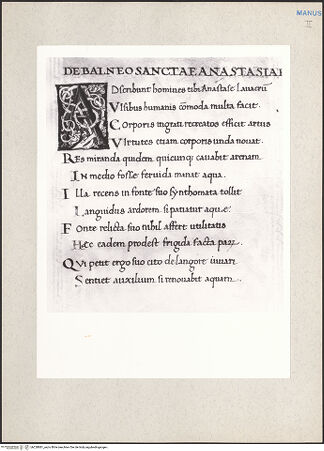 MANUS
II
DE BALNEO SANCTAE ANASTASIAE
ADscribunt homines tibi Anastase Lavacru
Vsibus humanis comoda multa facit.
Corporis ingrati recreatos efficit artus
Virtutes etiam corporis unda novat.
REs miranda quidem quicunq; cavabit arenam
IN medio fosse fervida manat aqua.
Illa recens in fonte suo synthomata tollit
Languidus ardorem si patiatur aque:
Fonte relicta suo nihil affert utilitatis
Hec eadem prodest frigida facta
QVi petit ergo suo cito de langore iuvari
Sentiet auxilium si renovabit aquam.